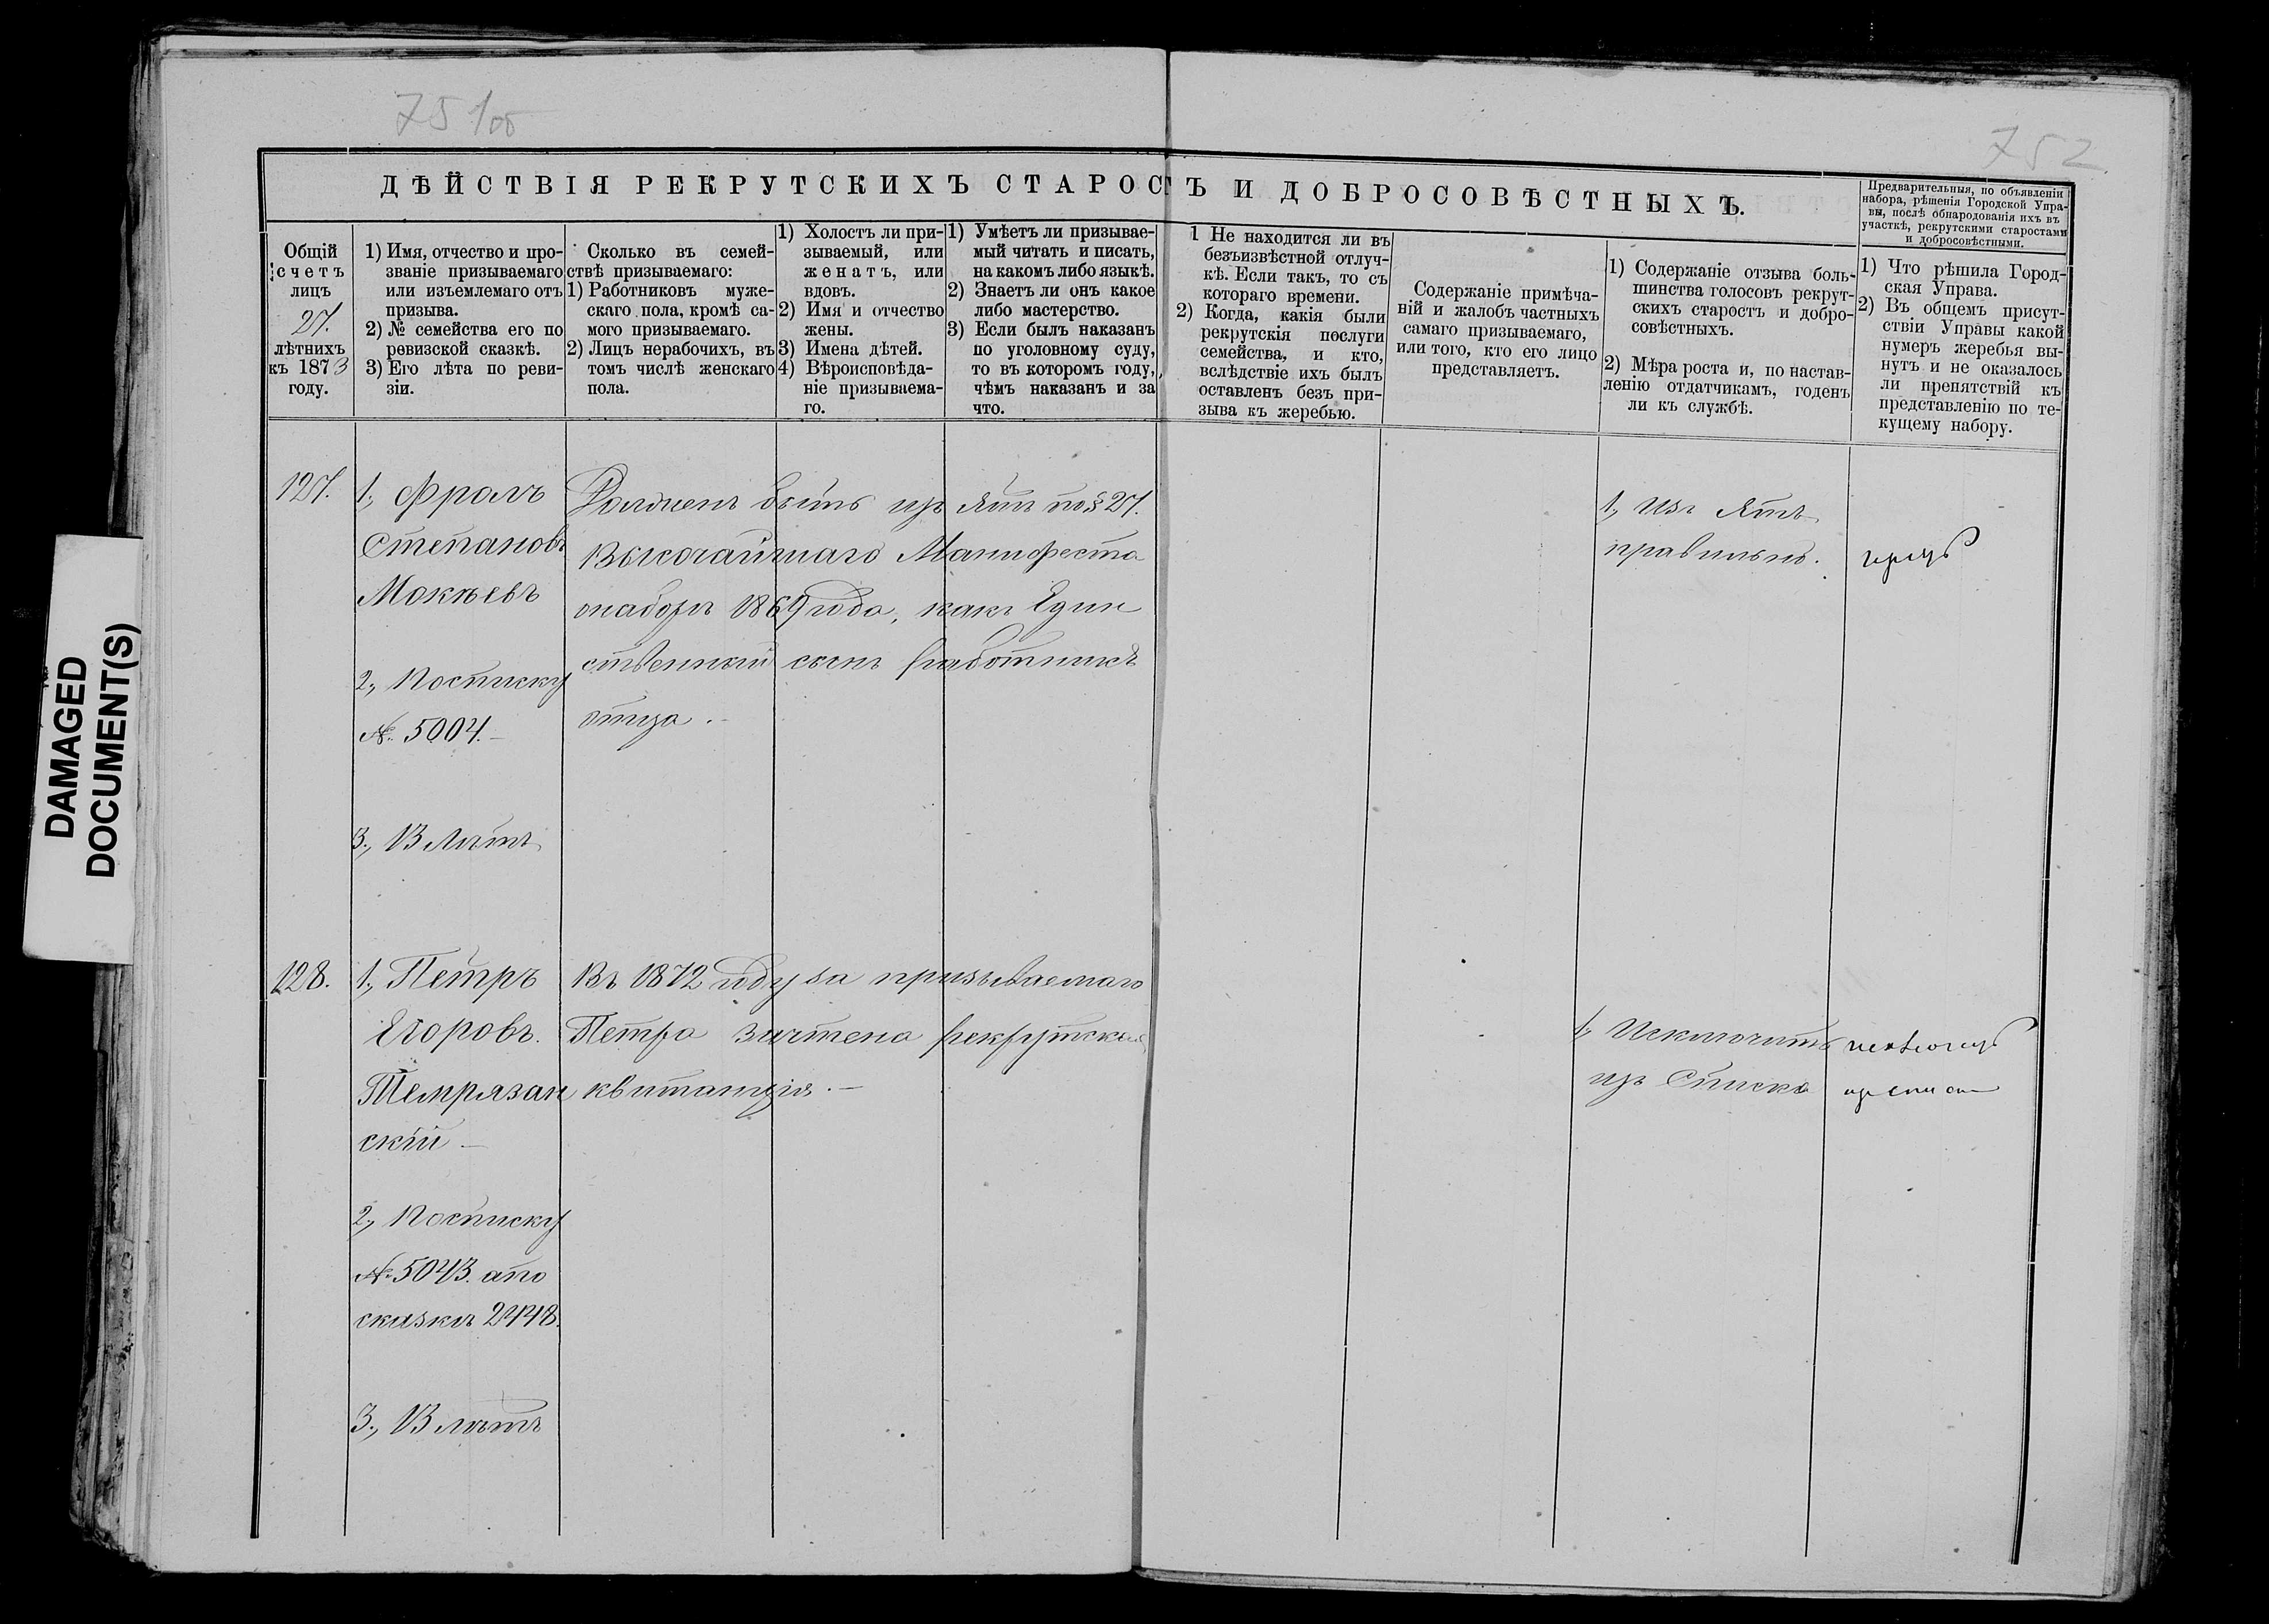 75 1об
752
ДѢЙСТВІЯ РЕКРУТСКИХЪ СТАРОСТЪ И ДОБРОСОВѢСТНЫХЪ.
Предварительныя, по объявленіи
набора, рѣшенія Городской Упра-
вы, послѣ обнародованія ихъ въ
участкѣ, рекрутскими старостами
и добросовѣстными.
Общій
счетъ
лицъ
21.
лѣтнихъ
къ 1873
году.
1) Имя, отчество и про-
званіе призываемаго
или изъемлемаго отъ
призыва.
2) № семейства его по
ревизской сказкѣ.
3) Его лѣта по реви-
зіи.
Сколько въ семей-
ствѣ призываемаго:
1) Работниковъ муже-
скаго пола, кромѣ са-
мого призываемаго.
2) Лицъ нерабочихъ, въ
томъ числѣ женскаго
пола.
1) Холостъ ли при-
зываемый, или
женатъ, или
вдовъ.
2) Имя и отчество
жены.
3) Имена дѣтей.
4) Вѣроисповѣда-
ніе призываема-
го.
1) Умѣетъ ли призывае-
мый читать и писать,
на какомъ либо языкѣ.
2) Знаетъ ли онъ какое
либо мастерство.
3) Если былъ наказанъ
по уголовному суду,
то въ которомъ году,
чѣмъ наказанъ и за
что.
1 Не находится ли въ
безъизвѣстной отлуч-
кѣ. Если такъ, то съ
котораго времени.
2) Когда, какія были
рекрутскія послуги
семейства, и кто,
вслѣдствіе ихъ былъ
оставленъ безъ при-
зыва къ жеребью.
Содержаніе примѣча-
ній и жалобъ частныхъ
самаго призываемаго,
или того, кто его лицо
представляетъ.
1) Содержаніе отзыва боль-
шинства голосовъ рекрут-
скихъ старостъ и добро-
совѣстныхъ.
2) Мѣра роста и, по настав-
ленію отдатчикамъ, годенъ
ли къ службѣ.
1) Что рѣшила Город-
ская Управа.
2) Въ общемъ присут-
ствіи Управы какой
нумеръ жеребья вы-
нутъ и не оказалось
ли препятствій къ
представленію по те-
кущему набору.
127.
1, Фролъ
Степановъ
Мокѣевъ
2, По списку
№ 5004.
3, 13 Лѣтъ
Долженъ быть изъ ятъ по § 21.
Высочайшаго Манифеста
о наборѣ 1869 года, какъ Един
ственный сынъ работникъ
отца.
1, Изъ Ятъ
правильно.
128.
1, Петръ
Егоровъ.
Темрязан
скій
2, По списку
№ 5043. а по
сказкѣ 2448.
3, 13 лѣтъ
Въ 1872 году за призываемаго
Петра зачтена рекрутская
квитанція.
1, Исключить
изъ Списка
изъ списка
DAMAGED
DOCUMENT(S)